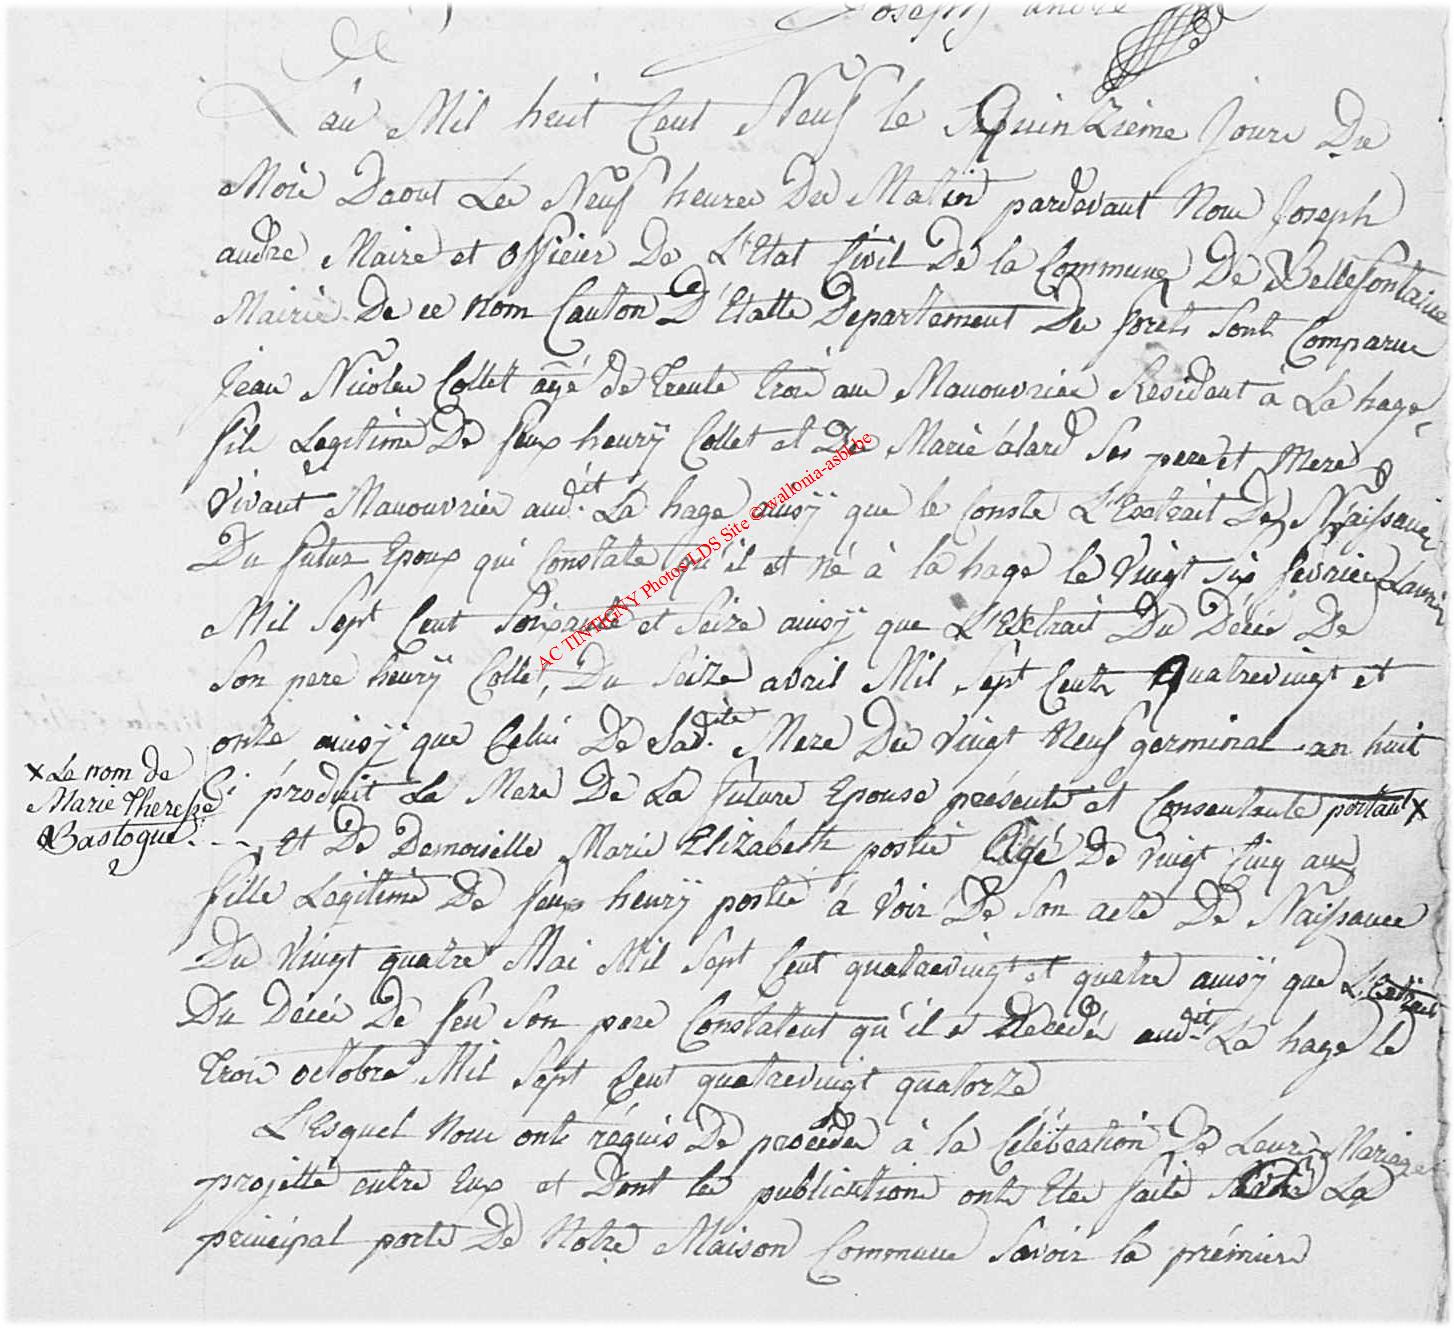 Joseph andre
L'an Mil huit Cent Neuf le Quinzieme Jour Du
Mois Daout Les Neuf heures Du Matin pardevant Nous Joseph
andre Maire et officier De L'Etat Civil De la Commune De Bellefontaine
Mairie De ce nom Canton D'Etalle Departement Des forets Sont Comparus
Jean Nicolas Collet agé de trente trois ans Manouvrier Residant a La hage
fils Legitime De feux henrÿ Collet et De Marie alard Ses pere et Mere
Vivant Manouvrier aud.it La hage ainsÿ que le Conste L'Extrait De Naissance
Du futur Epoux qui Constate qu'il et né à la hage le Vingt six fevrier Lannée
Mil Sept Cent Soixante et Seize ainsÿ que L'Extrait Du Décés De
Son pere henrÿ Collet, Du Seize avril Mil Sept Cents Quatrevingt et
onze ainsÿ que Celui De Sad.ite Mere Du Vingt Neuf germinal an huit
Ci produit La Mere De La future Epouse présente et Consentante portant x
x Le nom de
Marie Therese
Bastogne.
et De Demoiselle Marie Elizabeth postié Agé De Vingt Cinq ans
fille Legitime De feux henrÿ postié à Voir De Son acte De Naissance
Du Vingt quatre Mai Mil Sept Cent quatrevingt et quatre ainsÿ que L'Extrait
Du Décés De feu Son pere Constatent qu'il e Decedé aud.it La hage le
trois octobre Mil Sept Cent quatrevingt quatorze
L'Esquel Nous onts réquis De proceder à la Célébration De Leurs Mariage
projetté entre Eux et Dont les publications onts Etes faite La
principal porte De Notre Maison Commune Savoir la prémiere
AC TINTIGNY Photos LDS Site © wallonia-asbl.be